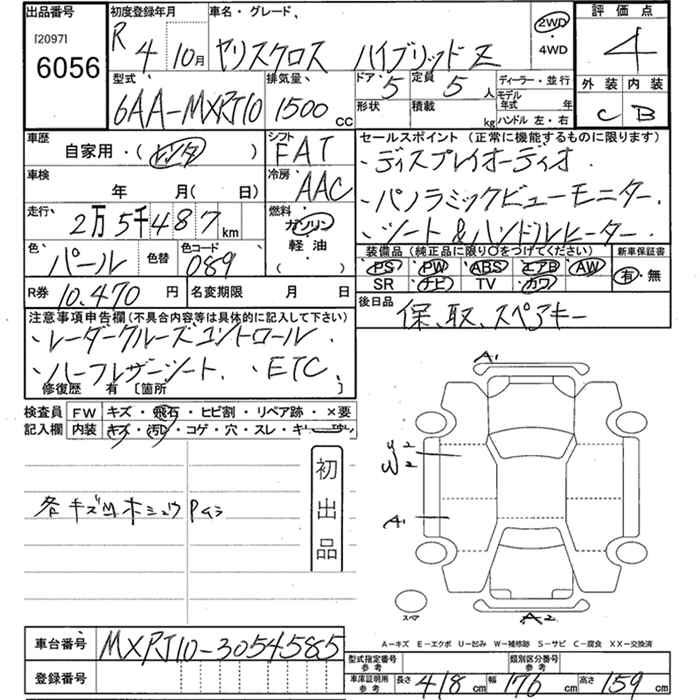 出品番号
[2097]
6056
初度登録年月
R 4 10月
車名・グレード
ヤリスクロス ハイブリッド Z
2WD
・
4WD
評価点
4
外装 内装
C B
型式
6AA-MXPJ10
排気量
1500 cc
ドア 5
定員 5 人
形状
積載 kg
ディーラー・並行
モデル年式 年
ハンドル 左・右
車歴
自家用・(レンタ )
シフト
FAT
車検
年 月( 日)
冷房
AAC
走行
2万5千487km
燃料
ガソリン
軽油
( )
色
パール
色替
色コード
089
R券 10,470 円
名変期限 月 日
セールスポイント (正常に機能するものに限ります)
・ディスプレイオーディオ.
・パノラミックビューモニター.
・シート&ハンドルヒーター.
装備品 (純正品に限り○をつけてください)
PS PW ABS エアB AW
SR ナビ TV カワ
新車保証書
有・無
後日品
保、取、スペアキー
注意事項申告欄 (不具合内容等は具体的に記入して下さい)
・レーダークルーズコントロール.
・ハーフレザーシート. ETC.
修復歴 有 [箇所 ]
検査員記入欄
FW キズ・飛石・ヒビ割・リペア跡・×要
内装 キズ・汚レ・コゲ・穴・スレ・キ
初出品
各キズ凹ホシュウPムラ
A1
W2
A1
スペア
A2
A−キズ E−エクボ U−凹み W−補修跡 S−サビ C−腐食 XX−交換済
車台番号 MXPJ10-3054585
登録番号
型式指定番号 参考
類別区分番号 参考
車庫証明用 参考
長さ 418 cm 幅 176 cm 高さ 159 cm